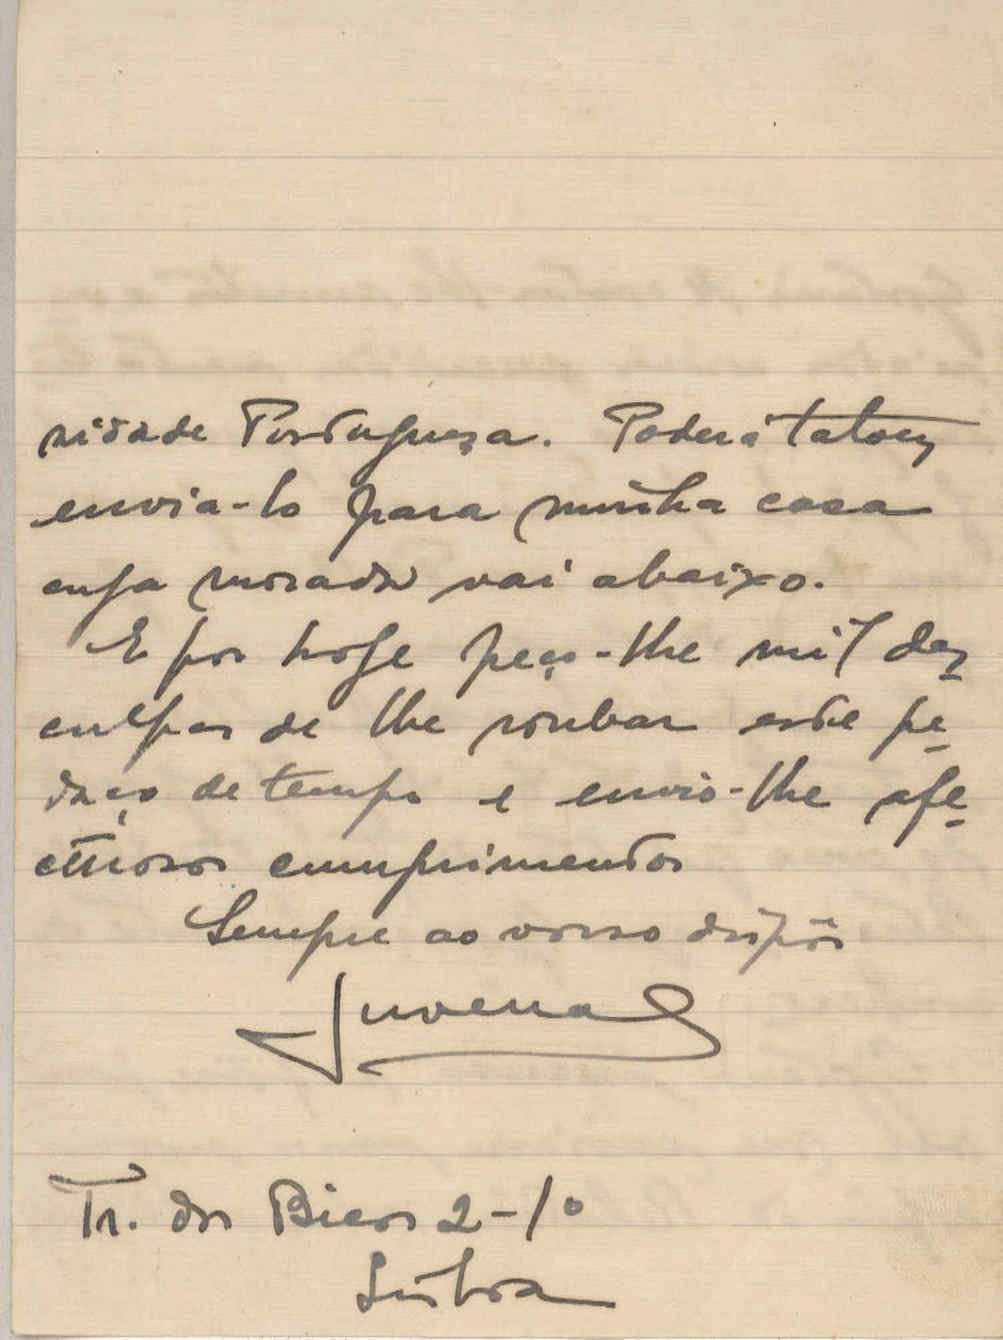 nidade Portuguesa. Poderá talvez
envia-lo para minha casa
cuja morada vai abaixo.
E por hoje peço-lhe mil des
culpas de lhe roubar este pe-
daço de tempo e envio-lhe afe-
ctuosos cumprimentos
Sempre ao vosso dispôr
Juvenal
Tr. dos Bicos 2-1º
Lisboa